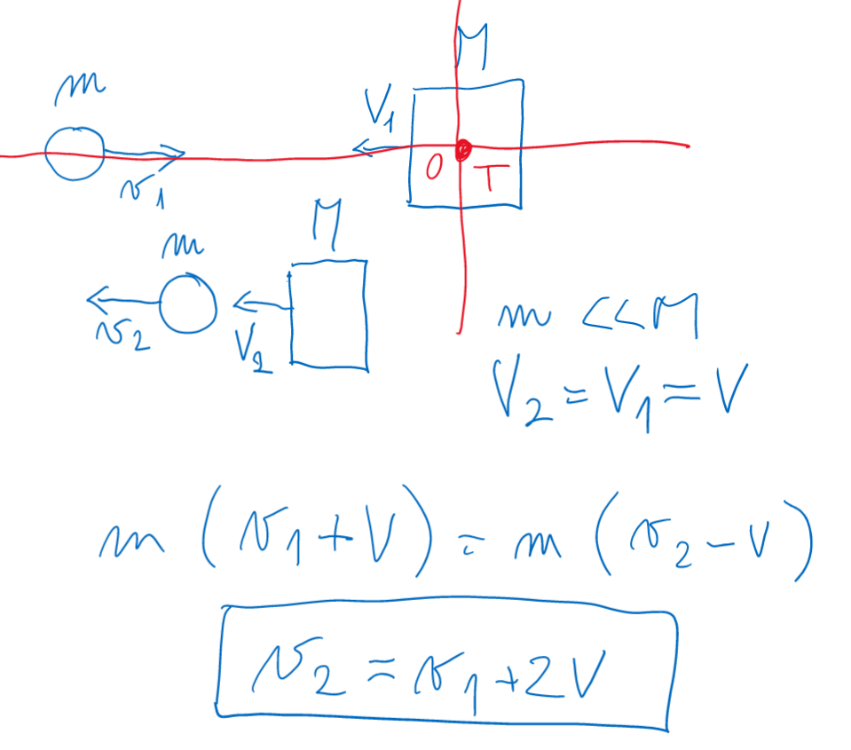 M
m
V₁
v₁
O T
M
m
v₂
V₂
m << M
V₂ = V₁ = V
m (v₁ + V) = m (v₂ - V)
v₂ = v₁ + 2V